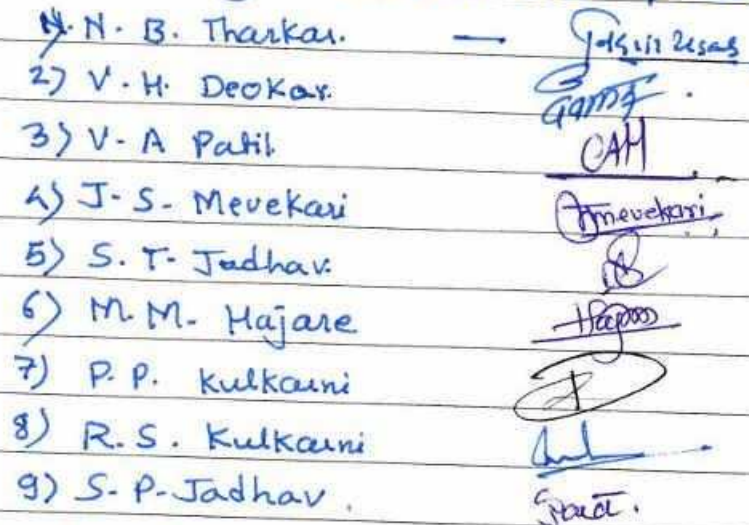 1) N. B. Tharkar. —
2) V. H. Deokar.
3) V. A Patil
4) J. S. Mevekari Jmevekari
5) S. T. Jadhav.
6) M. M. Hajare
7) P. P. Kulkarni
8) R. S. Kulkarni
9) S. P. Jadhav.